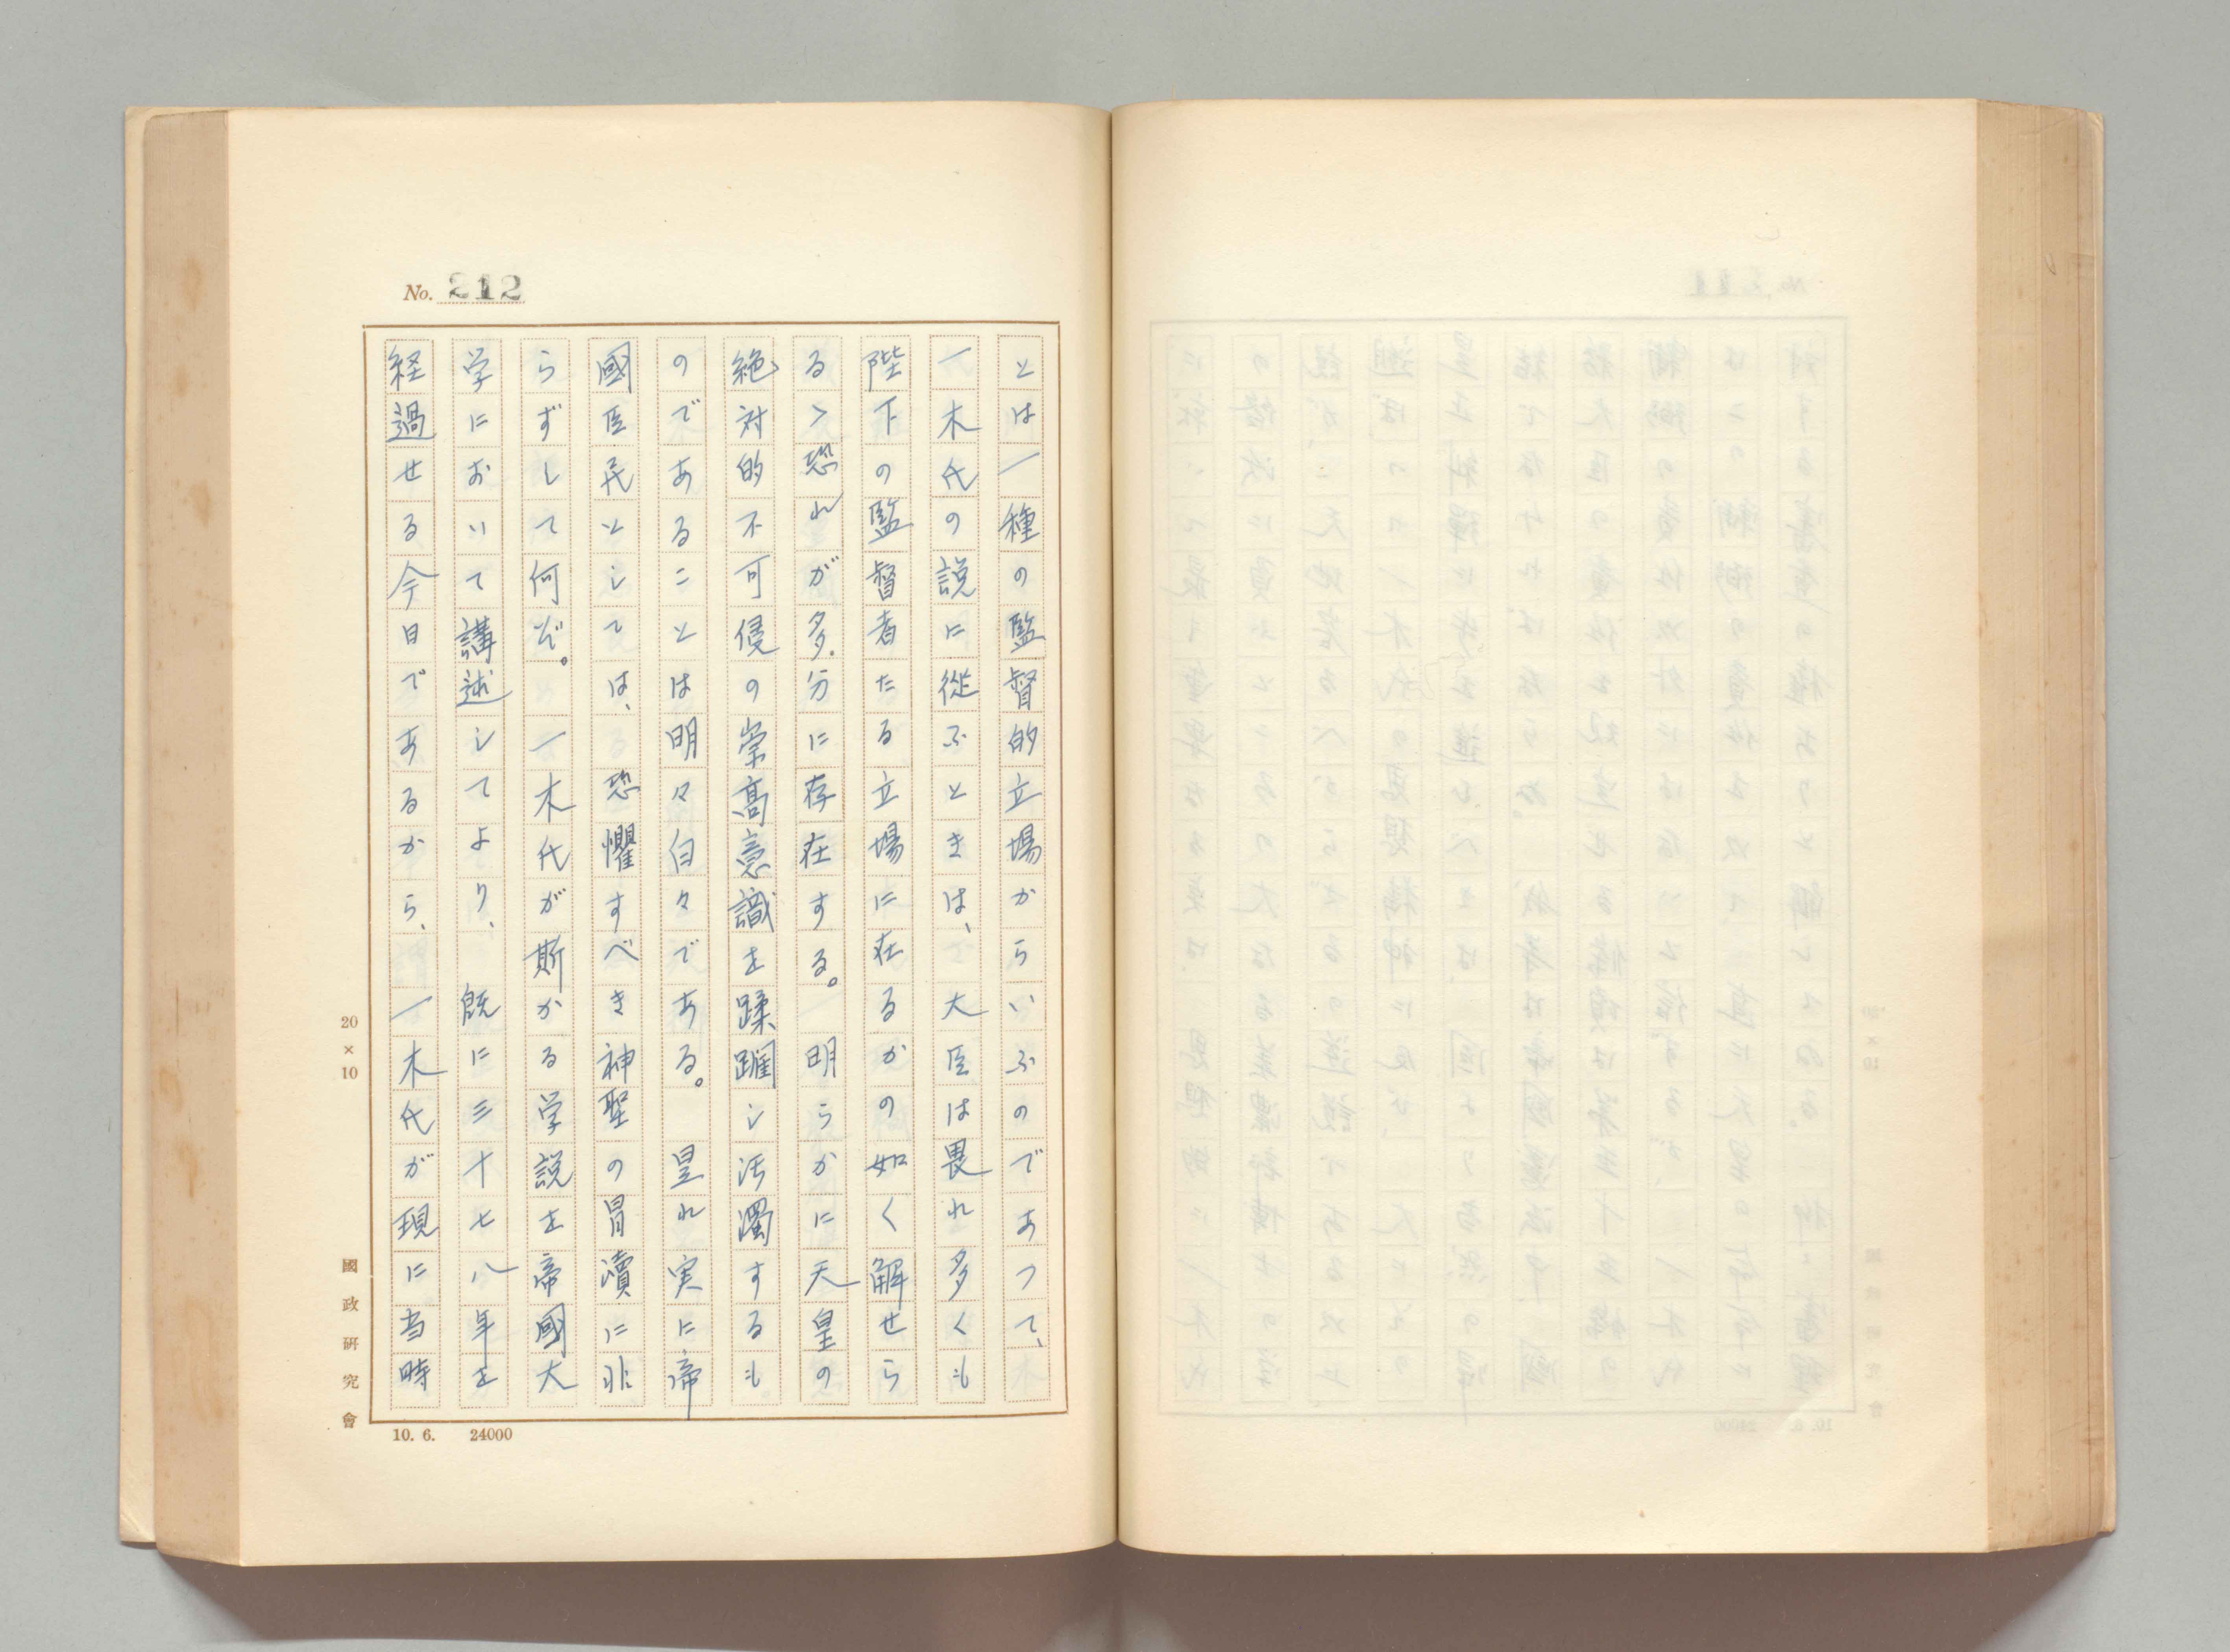 No. 212
とは一種の監督的立場からいふのであつて、
一木氏の説に從ふときは、大臣は畏れ多くも
陛下の監督者たる立場に在るかの如く解せら
るゝ恐れが多分に存在する。明らかに天皇の
絶対的不可侵の崇高意識を蹂躙し汚濁するも
のであることは明々白々である。是れ実に帝
國臣民としては、恐懼すべき神聖の冒瀆に非
らずして何ぞ。一木氏が斯かる学説を帝國大
学において講述してより、既に三十七八年を
経過せる今日であるから、一木氏が現に当時
20×10
國政研究會
10. 6. 24000